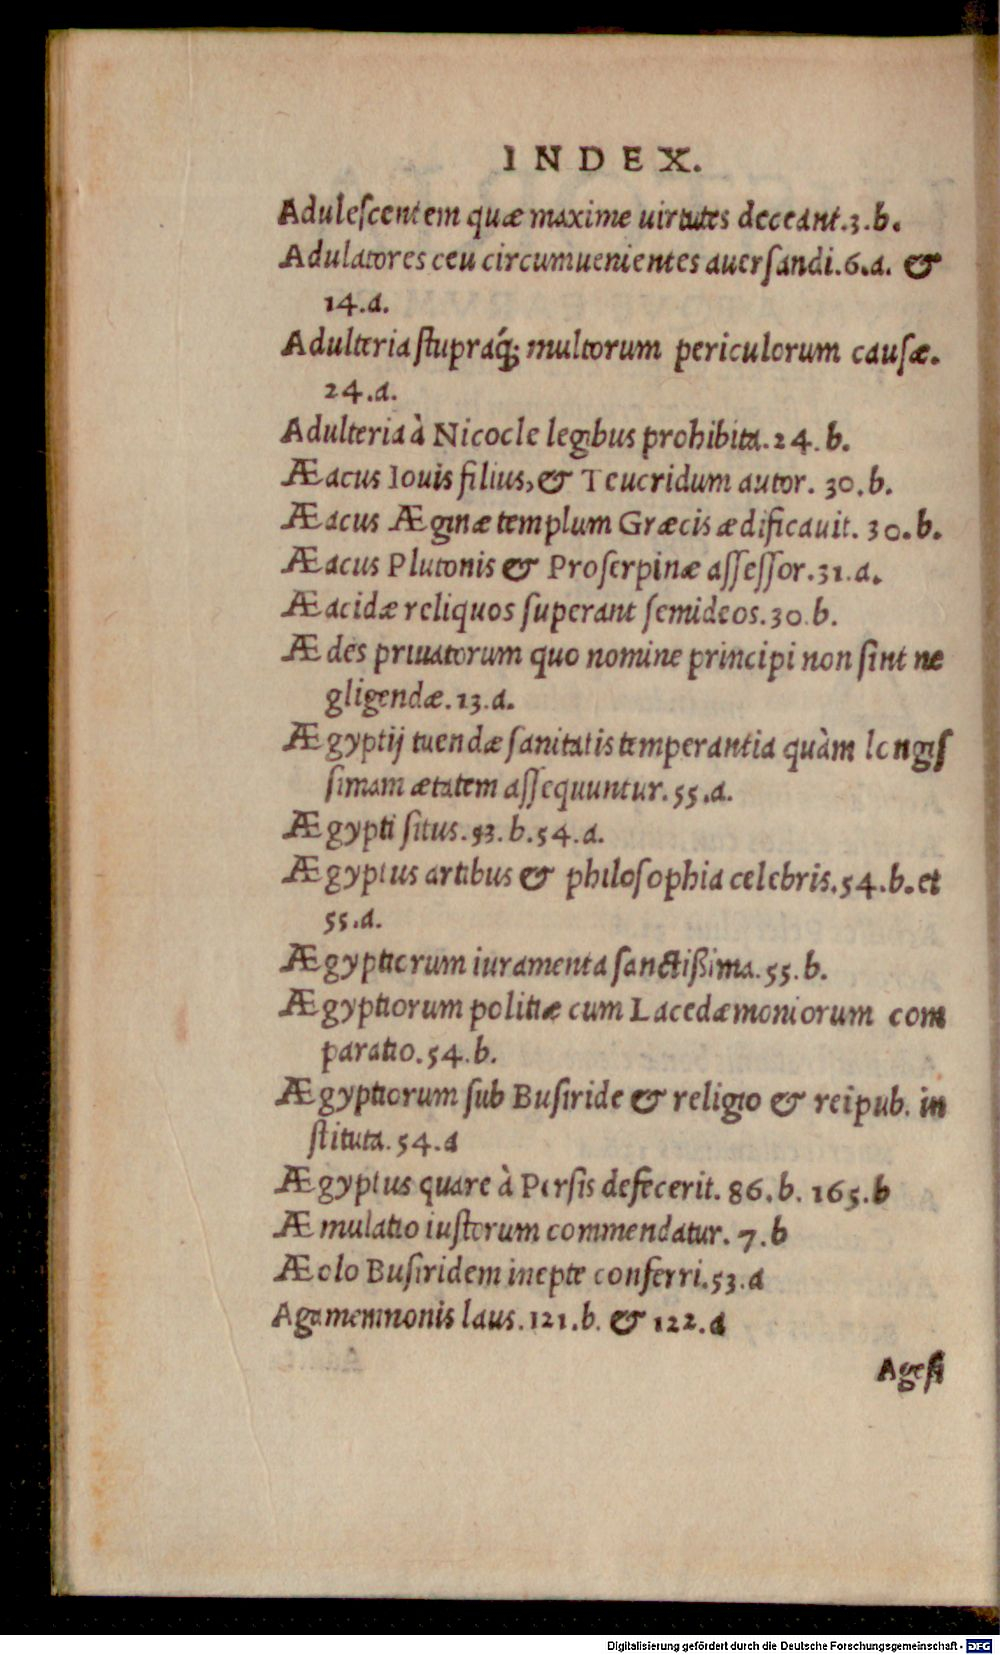 INDEX.
Adulescentem quæ maxime uirtutes deceant.3.b.
Adulatores ceu circumuenientes auersandi.6.a. &
14.a.
Adulteria stupraq́; multorum periculorum causæ.
24.a.
Adulteria à Nicocle legibus prohibita.24.b.
Æacus Iouis filius,& Teucridum autor. 30.b.
Æacus Æginæ templum Græcis ædificauit. 30.b.
Æacus Plutonis & Proserpinæ assessor.31.a.
Æacidæ reliquos superant semideos.30.b.
Ædes priuatorum quo nomine principi non sint ne
gligendæ.13.a.
Ægyptij tuendæ sanitatis temperantia quàm longis
simam ætatem assequuntur.55.a.
Ægypti situs.53.b.54.a.
Ægyptus artibus & philosophia celebris.54.b.et
55.a.
Ægyptiorum iuramenta sanctißima.55.b.
Ægyptiorum politiæ cum Lacedæmoniorum com
paratio.54.b.
Ægyptiorum sub Busiride & religio & reipub. in
stituta.54.a
Ægyptus quare à Persis defecerit. 86.b. 165.b
Æmulatio iustorum commendatur. 7.b
Æolo Busiridem inepte conferri.53.a
Agamemnonis laus.121.b. & 122.a
Agesi
Digitalisierung gefördert durch die Deutsche Forschungsgemeinschaft - DFG